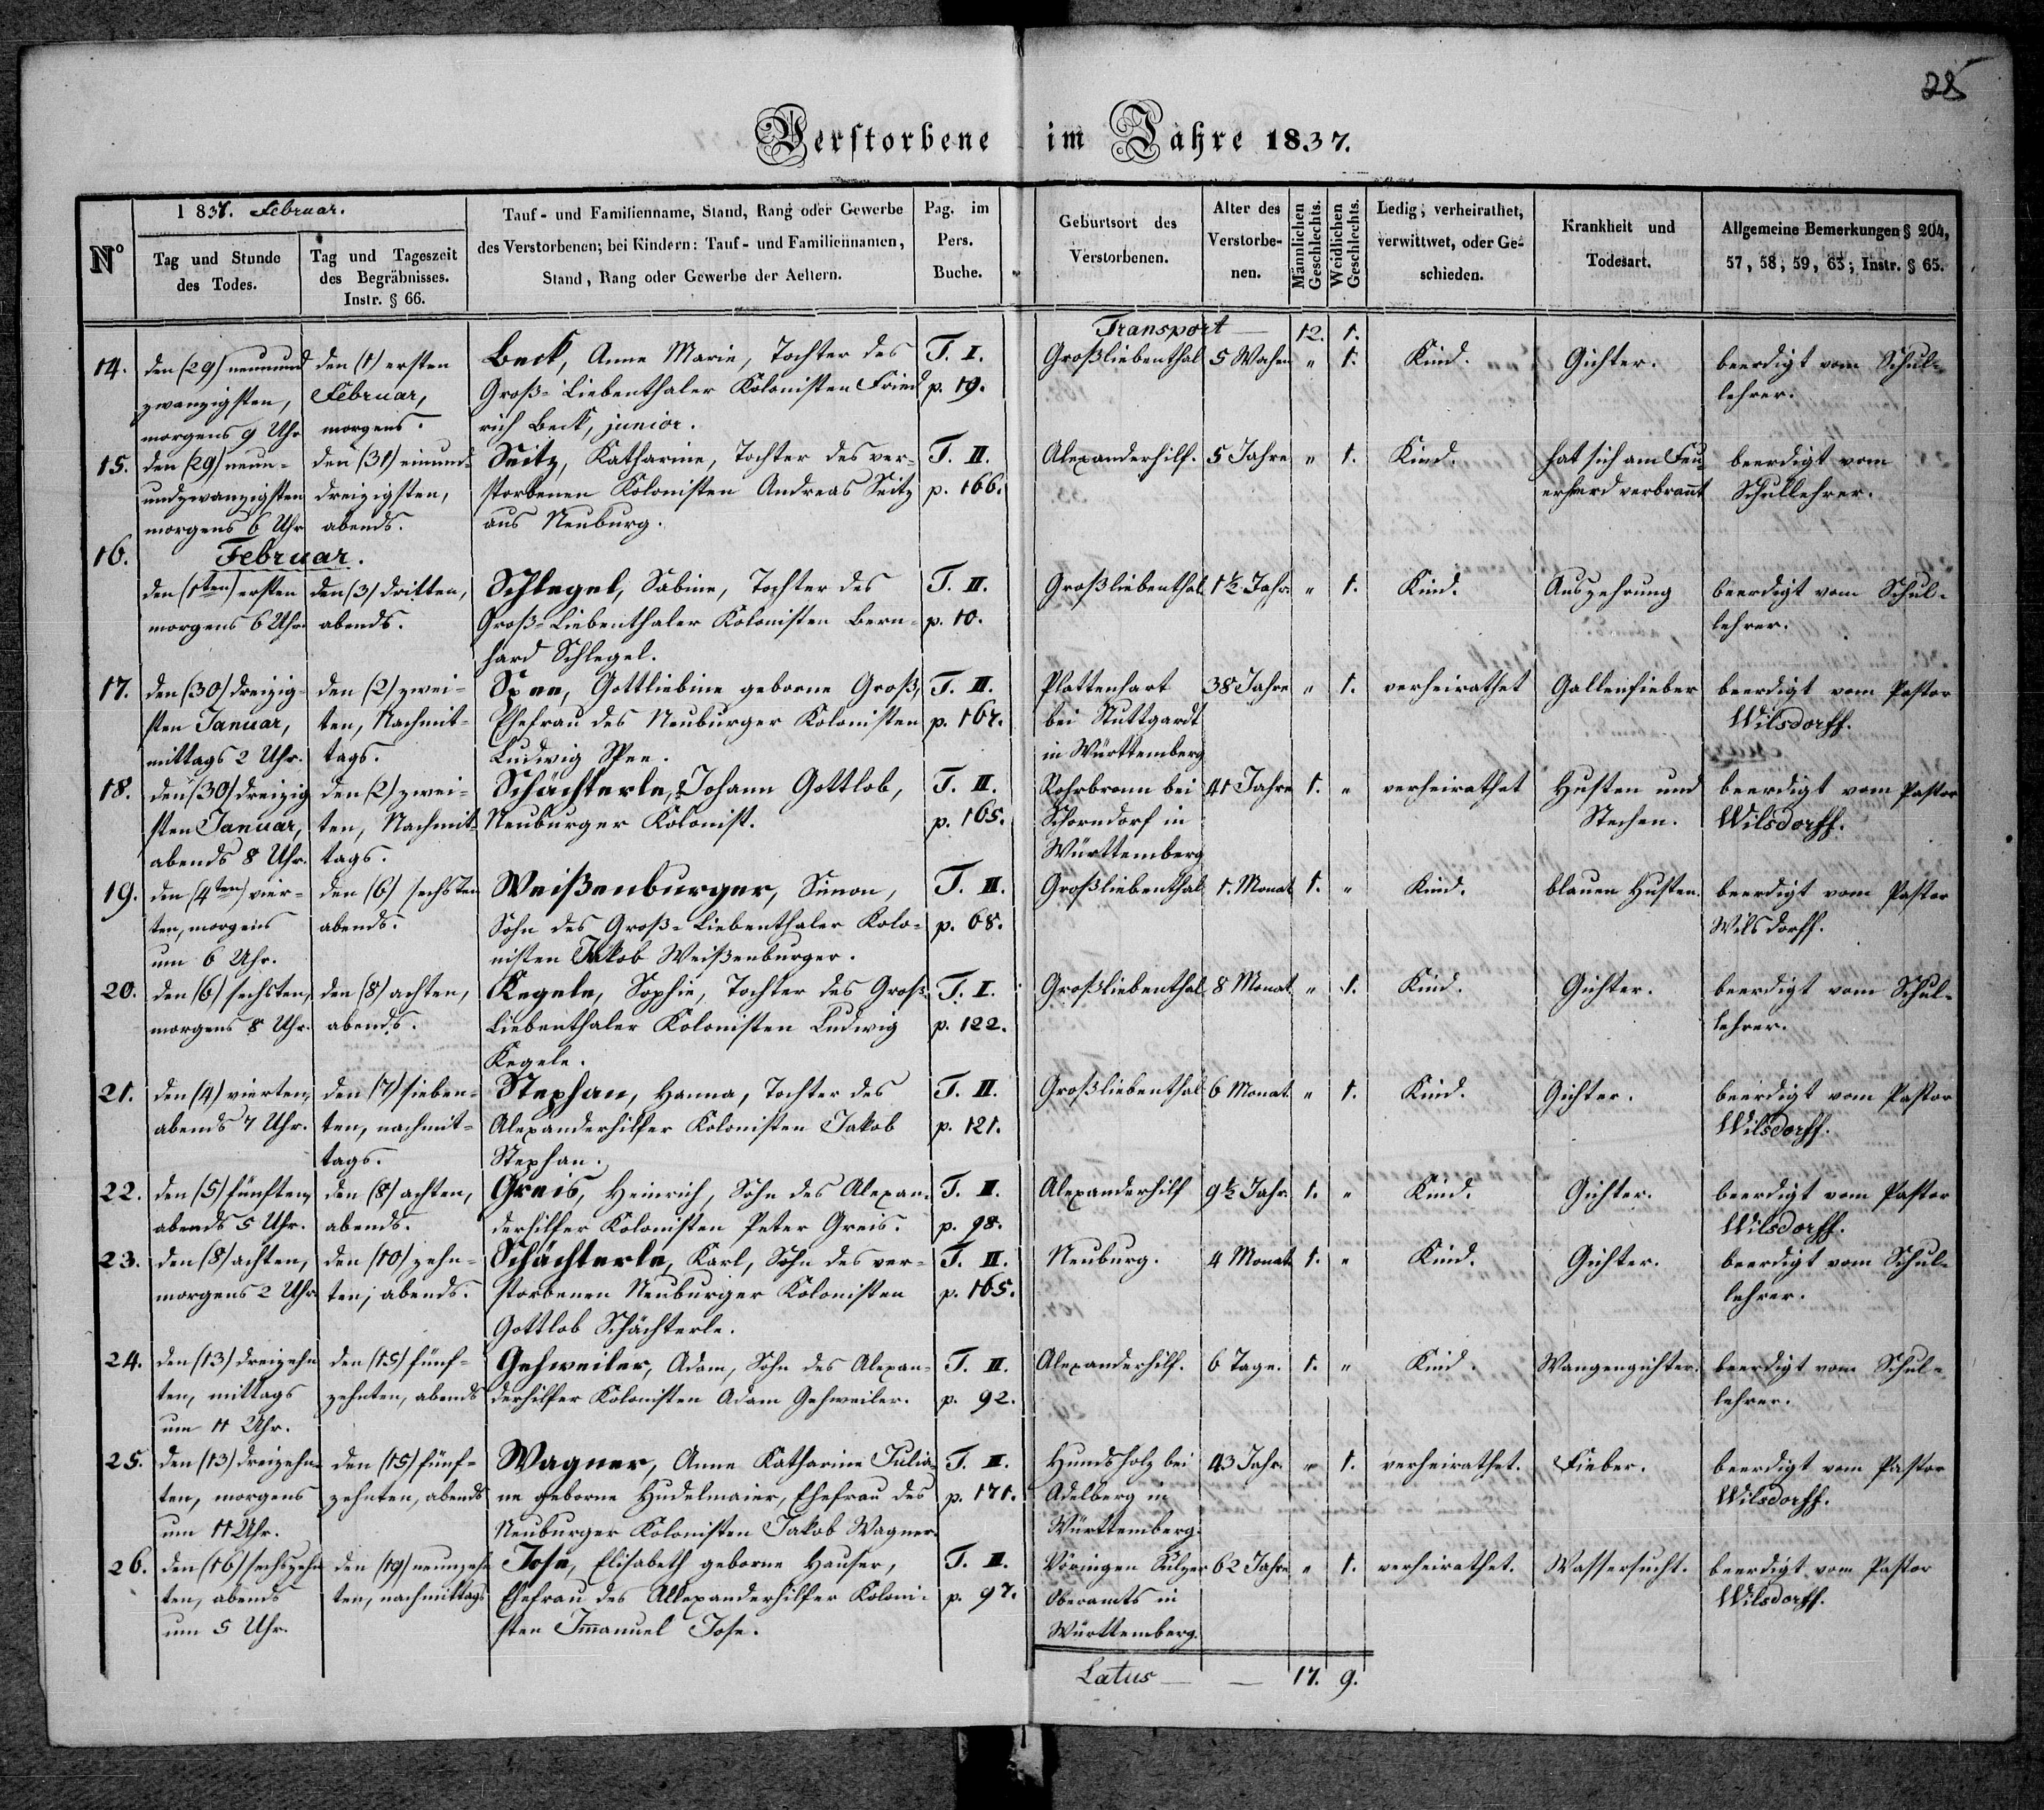 28
Verstorbene im Jahre 1837.
N°
1837. Februar.
Tag und Stunde des Todes.
Tag und Tageszeit des Begräbnisses. Instr. § 66.
Tauf- und Familienname, Stand, Rang oder Gewerbe
des Verstorbenen; bei Kindern: Tauf- und Familiennamen,
Stand, Rang oder Gewerbe der Aeltern.
Pag. im Pers. Buche.
Geburtsort des Verstorbenen.
Alter des Verstorbenen.
Männlichen Geschlechts.
Weiblichen Geschlechts.
Ledig, verheirathet, verwittwet, oder Geschieden.
Krankheit und Todesart.
Allgemeine Bemerkungen § 204, 57, 58, 59, 63; Instr. § 65.
Transport — 12. 1.
14. den (29) neunund den (1) ersten Beck, Anne Marie, Tochter des T. I. Großliebenthal 5 Wochen " 1. Kind. Gichter. beerdigt vom Schul-
zwanzigsten, Februar, Groß-Liebenthaler Kolonisten Fried p. 19. lehrer.
morgens 9 Uhr morgens. rich Beck, junior.
15. den (29) neun- den (31) einund- Seitz, Katharine, Tochter des ver- T. II. Alexanderhilf. 5 Jahre " 1. Kind. hat sich am Feu- beerdigt vom
undzwanzigsten dreizigsten, storbenen Kolonisten Andreas Seitz p. 166. erherd verbrannt Schullehrer.
morgens 6 Uhr abends. aus Neuburg.
16. Februar.
den (1ten) ersten den (3) dritten, Schlegel, Sabine, Tochter des T. II. Großliebenthal 1½ Jahr. " 1. Kind. Auszehrung beerdigt vom Schul-
morgens 6 Uhr. abends. Groß-Liebenthaler Kolonisten Bern- p. 10. lehrer.
hard Schlegel.
17. den (30) dreizig- den (2) zwei- Spee, Gottliebine geborne Groß, T. II. Plattenhart 38 Jahre " 1. verheirathet Gallenfieber beerdigt vom Pastor
sten Januar, ten, Nachmit- Ehefrau des Neuburger Kolonisten p. 167. bei Stuttgardt Wilsdorff.
mittags 2 Uhr. tags. Ludwig Spee. in Württemberg
18. den (30) dreizig den (2) zwei- Schächterle, Johann Gottlob, T. II. Rohrbronn bei 41 Jahre 1. " verheirathet Husten und beerdigt vom Pastor
sten Januar, ten, Nachmit- Neuburger Kolonist. p. 165. Schorndorf in Stechen. Wilsdorff.
abends 8 Uhr. tags. Württemberg
19. den (4ten) vier- den (6) sechsten Weißenburger, Simon, T. II. Großliebenthal 1. Monat 1. " Kind. blauen Husten. beerdigt vom Pastor
ten, morgens abends. Sohn des Groß-Liebenthaler Kolo- p. 68. Wilsdorff.
um 6 Uhr. nisten Jakob Weißenburger.
20. den (6) sechsten, den (8) achten, Kegele, Sophie, Tochter des Groß- T. I. Großliebenthal 8 Monat " 1. Kind. Gichter. beerdigt vom Schul-
morgens 8 Uhr. abends. Liebenthaler Kolonisten Ludwig p. 122. lehrer.
Kegele.
21. den (4) vierten, den (7) sieben- Stephan, Hanna, Tochter des T. II. Großliebenthal 6 Monat " 1. Kind. Gichter. beerdigt vom Pastor
abends 7 Uhr. ten, nachmit- Alexanderhilfer Kolonisten Jakob p. 121. Wilsdorff.
tags. Stephan.
22. den (5) fünften, den (8) achten, Greis, Heinrich, Sohn des Alexan- T. II. Alexanderhilf 9½ Jahr. 1. " Kind. Gichter. beerdigt vom Pastor
abends 5 Uhr. abends. derhilfer Kolonisten Peter Greis. p. 98. Wilsdorff.
23. den (8) achten, den (10) zehn- Schächterle, Karl, Sohn des ver- T. II. Neuburg. 4 Monat 1. " Kind. Gichter. beerdigt vom Schul-
morgens 2 Uhr ten, abends. storbenen Neuburger Kolonisten p. 165. lehrer.
Gottlob Schächterle.
24. den (13) dreizehn den (15) fünf- Gehweiler, Adam, Sohn des Alexan- T. II. Alexanderhilf. 6 Tage. 1. " Kind. Wangengichter. beerdigt vom Schul-
ten, mittags zehnten, abends derhilfer Kolonisten Adam Gehweiler. p. 92. lehrer.
um 11 Uhr.
25. den (13) dreizehn- den (15) fünf- Wagner, Anne Katharine Julia- T. II. Hundsholz bei 43 Jahr. " 1. verheirathet. Fieber. beerdigt vom Pastor
ten, morgens zehnten, abends ne geborne Hudelmaier, Ehefrau des p. 171. Adelberg in Wilsdorff.
um 11 Uhr. Neuburger Kolonisten Jakob Wagner. Württemberg.
26. den (16) sechszehn den (19) neunzehn Jose, Elisabeth geborne Hauser, T. II. Vöringen Sulzer 62 Jahre " 1. verheirathet. Wassersucht. beerdigt vom Pastor
ten, abends ten, nachmittags Ehefrau des Allexanderhilfer Koloni- p. 97. Oberamts in Wilsdorff.
um 5 Uhr. sten Immanuel Jose. Württemberg.
Latus — — 17. 9.